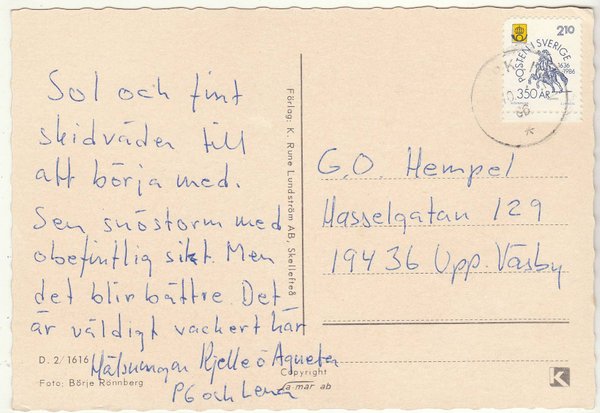 Sol och fint
skidväder till
att börja med.
Sen snöstorm med
obefintlig sikt. Men
det blir bättre. Det
är väldigt vackert här
Hälsningar Kjelle o Agneta
PG och Lena
D. 2/1616
Foto: Börje Rönnberg
Förlag: K. Rune Lundström AB, Skellefteå
Copyright
a mar ab
2,10
POSTEN I SVERIGE
1636
1986
350 ÅR
86
G.O. Hempel
Hasselgatan 129
194 36 Upp. Väsby
K